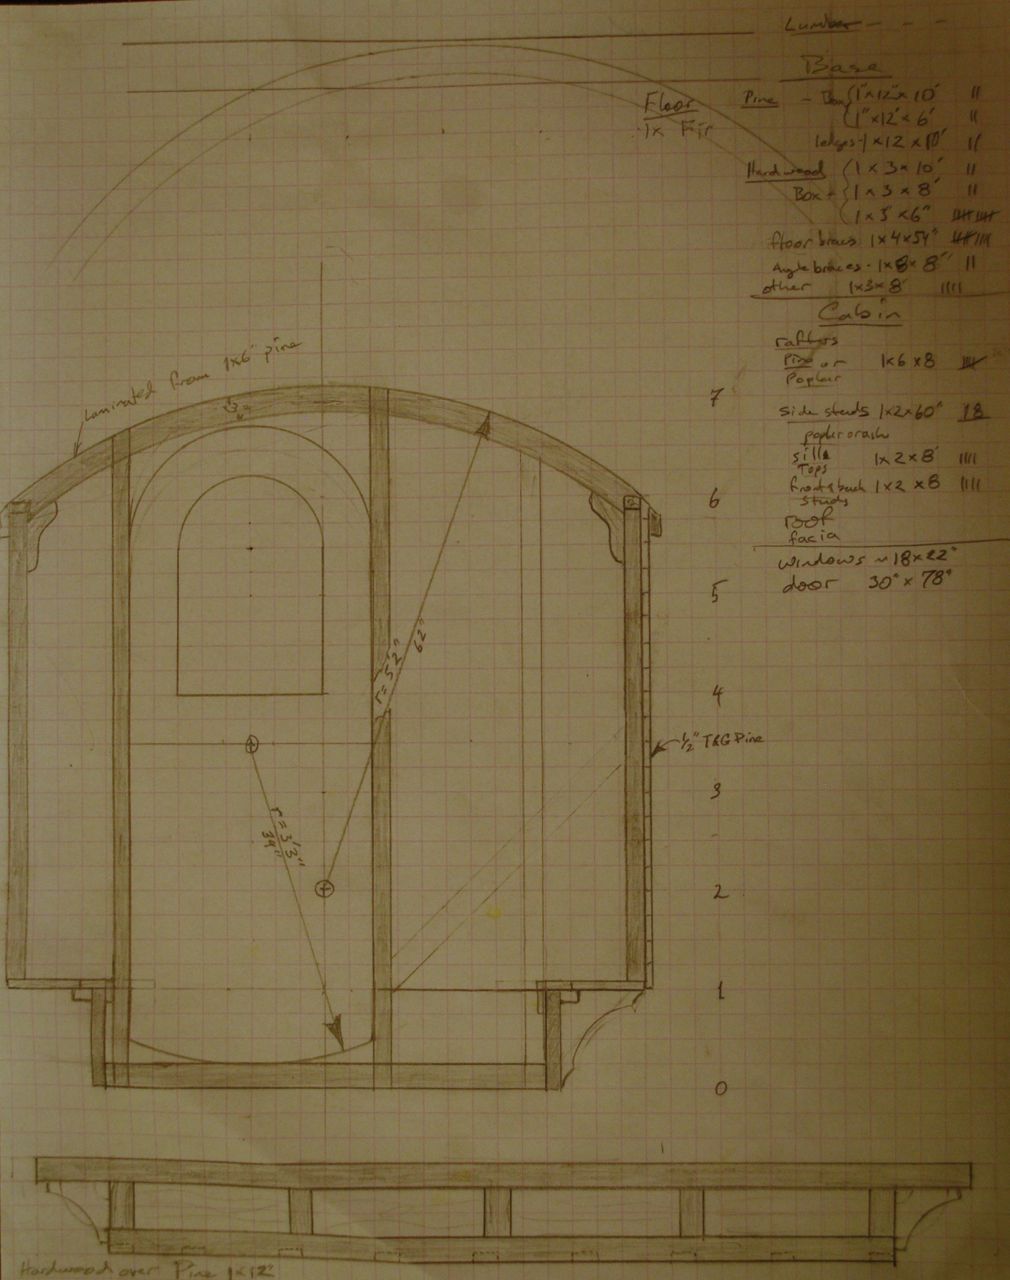 Lumber - - -
Base
Floor
1x Fir
Pine - Box { 1"x12"x10'  ||
{ 1"x12"x6'  ||
ledges - 1x12x10'  ||
Hardwood { 1x3x10'  ||
Box - { 1x3x8'  ||
floor braces 1x4x54"
Angle braces - 1x8x8"  ||
other 1x3x8'  ||||
Cabin
rafters
Pine or 1x6x8
Poplar
side studs 1x2x60" 18
poplar or ash
sills 1x2x8'  ||||
Tops
front & back 1x2x8  ||||
studs
roof
facia
windows ~ 18x22"
door 30" x 78"
Laminated from 1x6" pine
3"
7
6
5
4
3
2
1
0
r = 5'2"
62"
r = 3'3"
39"
1/2" T&G Pine
Hardwood over Pine 1x12"